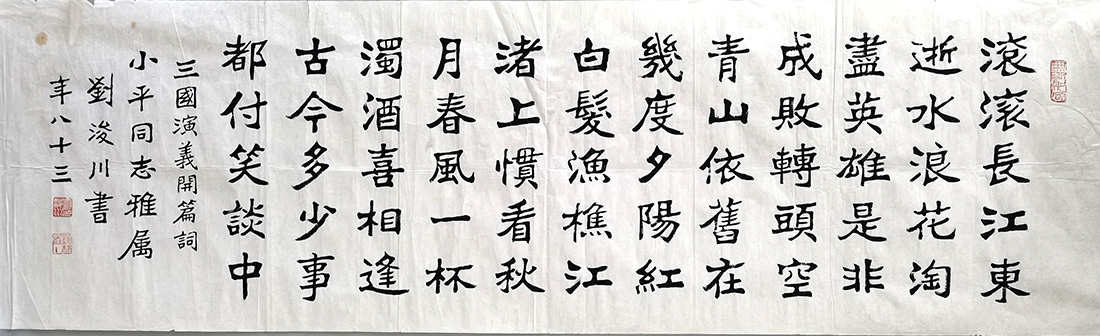 滚滚長江東
逝水浪花淘
盡英雄是非
成敗轉頭空
青山依舊在
幾度夕陽紅
白髮漁樵江
渚上慣看秋
月春風一杯
濁酒喜相逢
古今多少事
都付笑談中
三國演義開篇詞
小平同志雅属
劉浚川書
年八十三